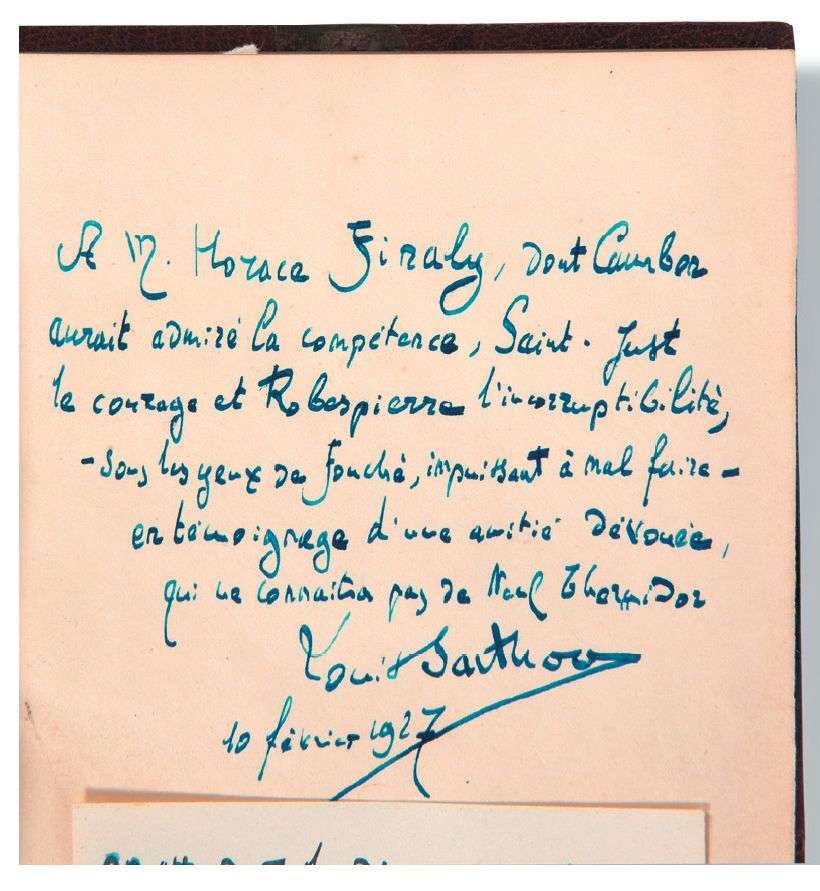 A M. Horace Finaly, dont Cambon
aurait admiré la compétence, Saint-Just
le courage et Robespierre l'incorruptibilité,
- sous les yeux de Fouché, impuissant à mal faire -
en témoignage d'une amitié dévouée,
qui ne connaitra pas de Neuf Thermidor
Louis Barthou
10 février 1927